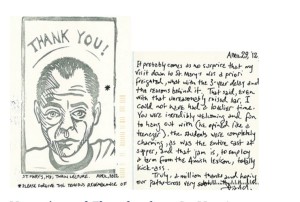 THANK YOU!
ST. MARY'S, MD, TURN LECTURE. APRIL, 2012
* PLEASE FORGIVE THE TENUOUS RESEMBLANCE OF
APRIL 28, '12
It probably comes as no surprise that my
visit down to St. Mary's was a priori
freighted, what with the 3-year delay and
the reasons behind it. That said, even
with that unreasonably raised bar, I
could not have had a lovelier time.
You were incredibly welcoming and fun
to hang out with (he opined like a
teenager), the students were completely
charming, as was the entire cast at
supper, and that jam is, to employ
a term from the Finnish lexicon, totally
kick-ass.
Truly, a million thanks and
our paths cross very